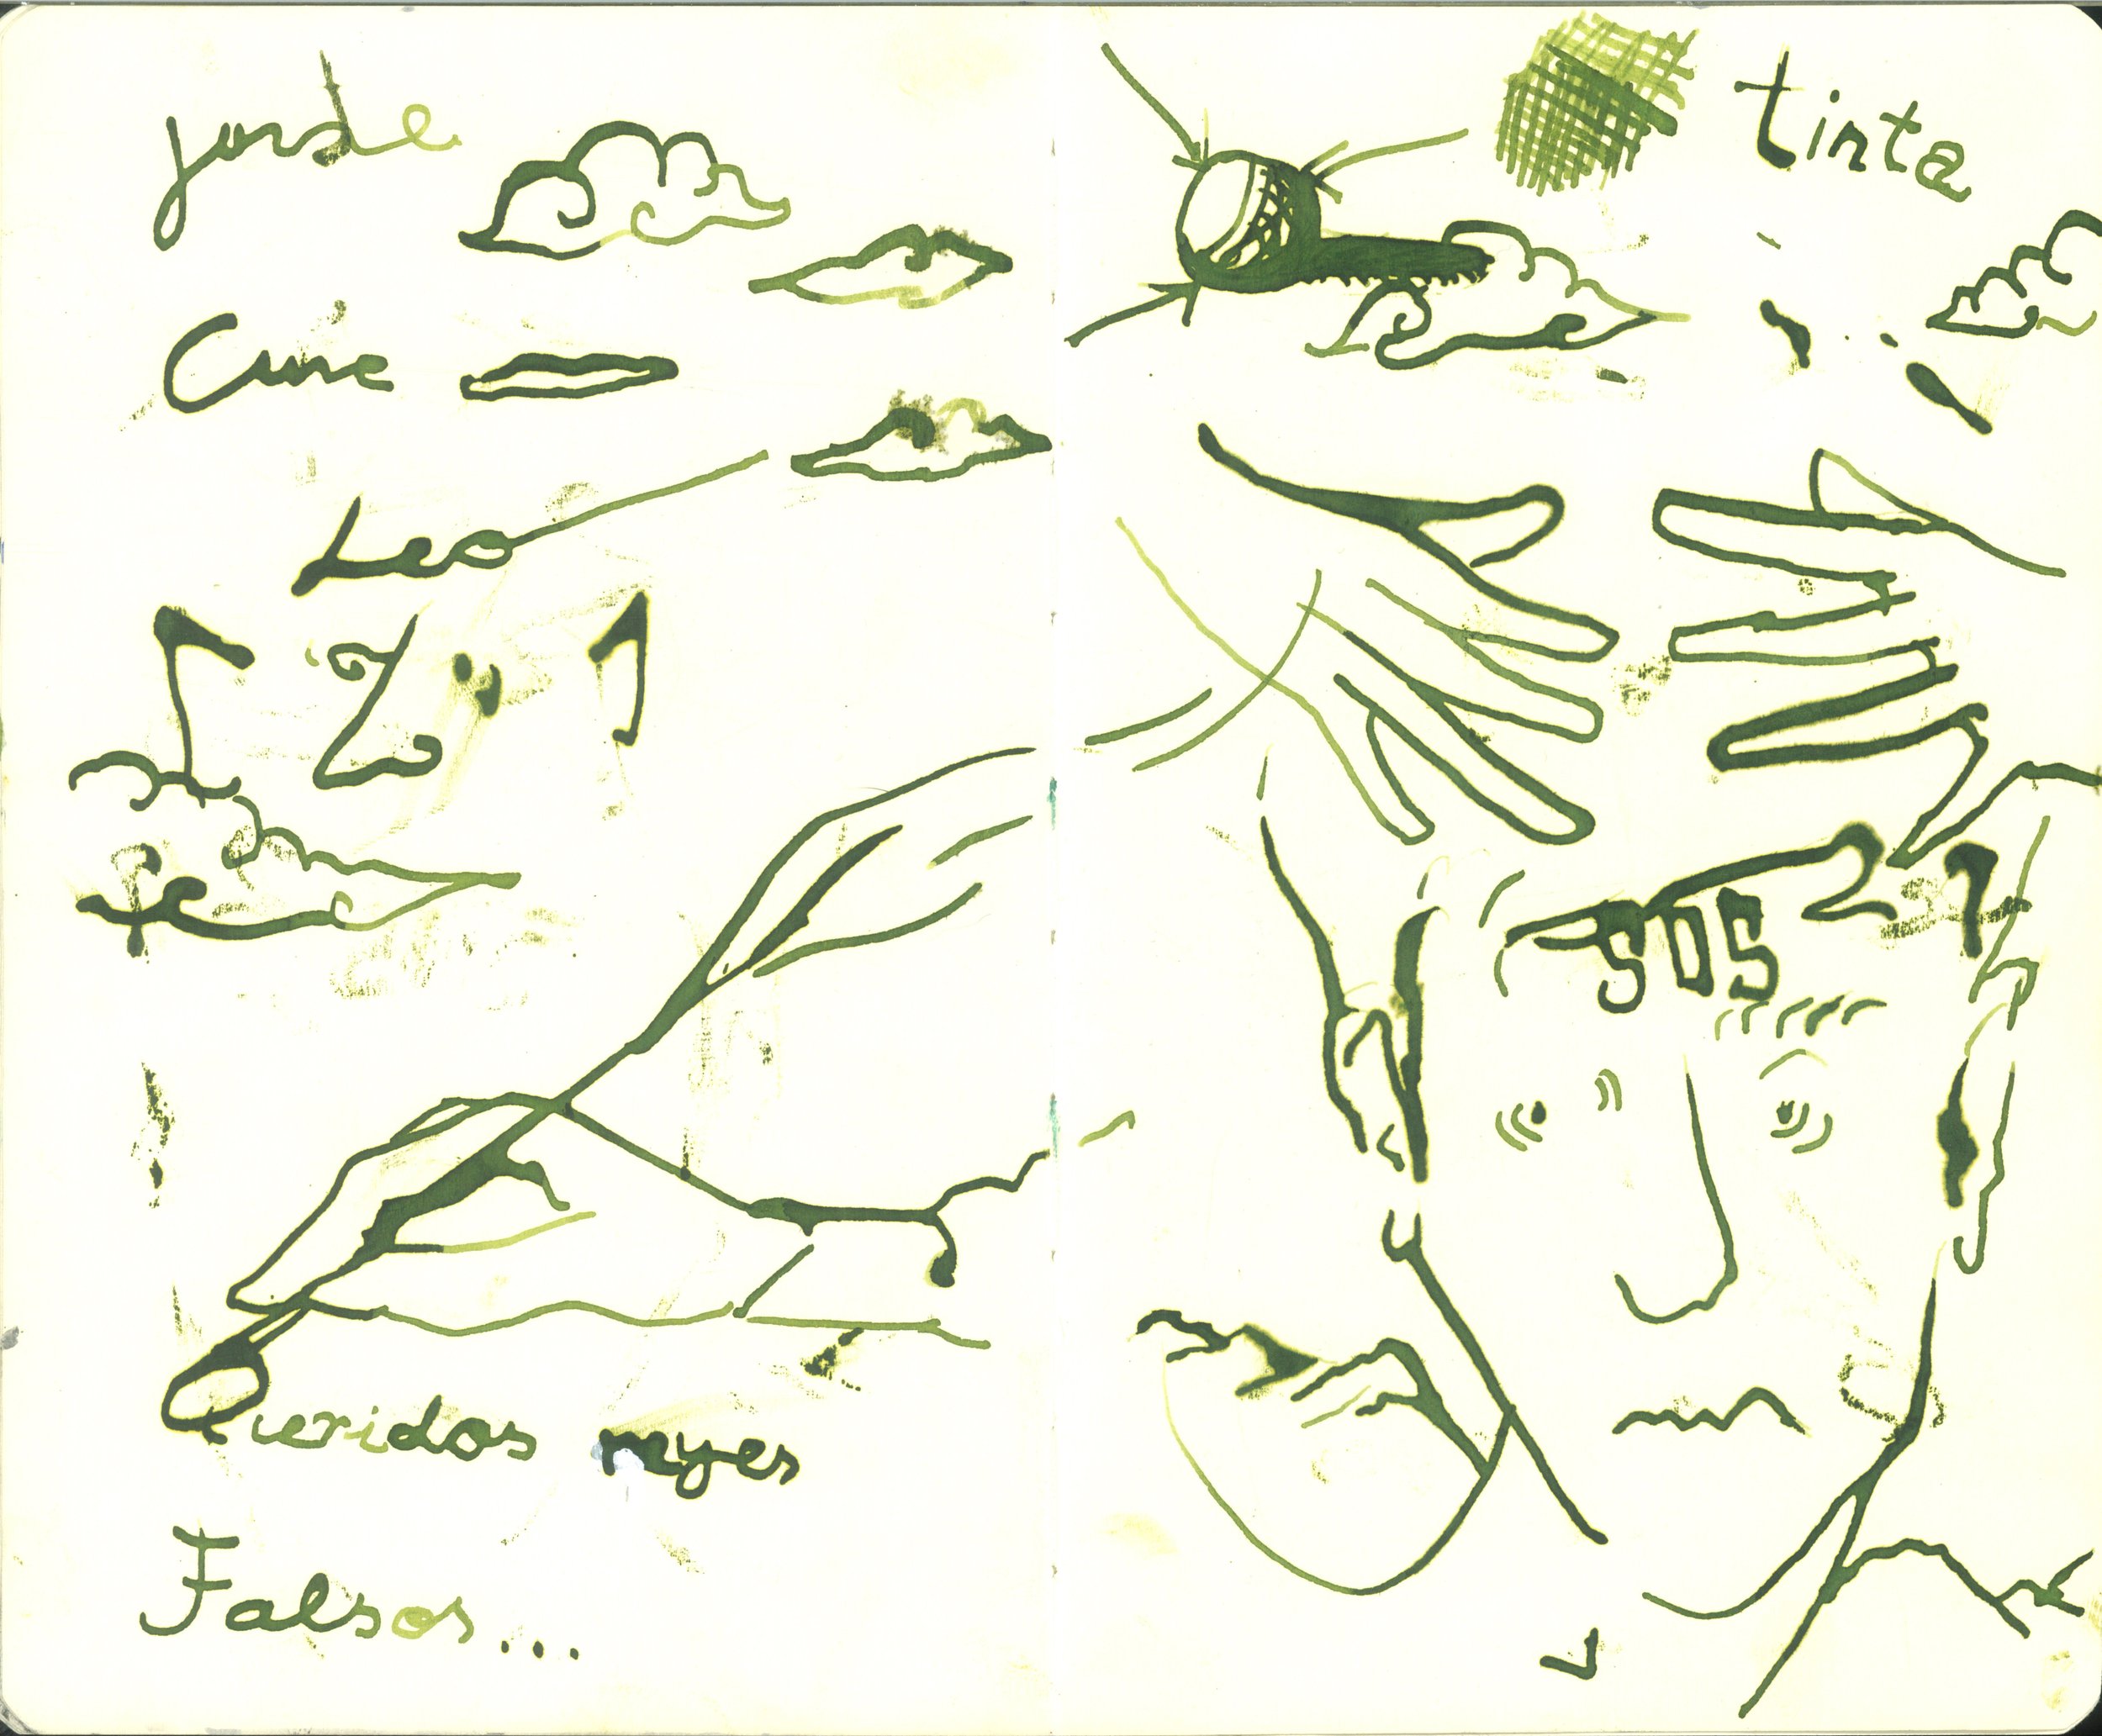 jorde
Cune
Leo
Queridos reyes
Falsos...
tinta
SOS